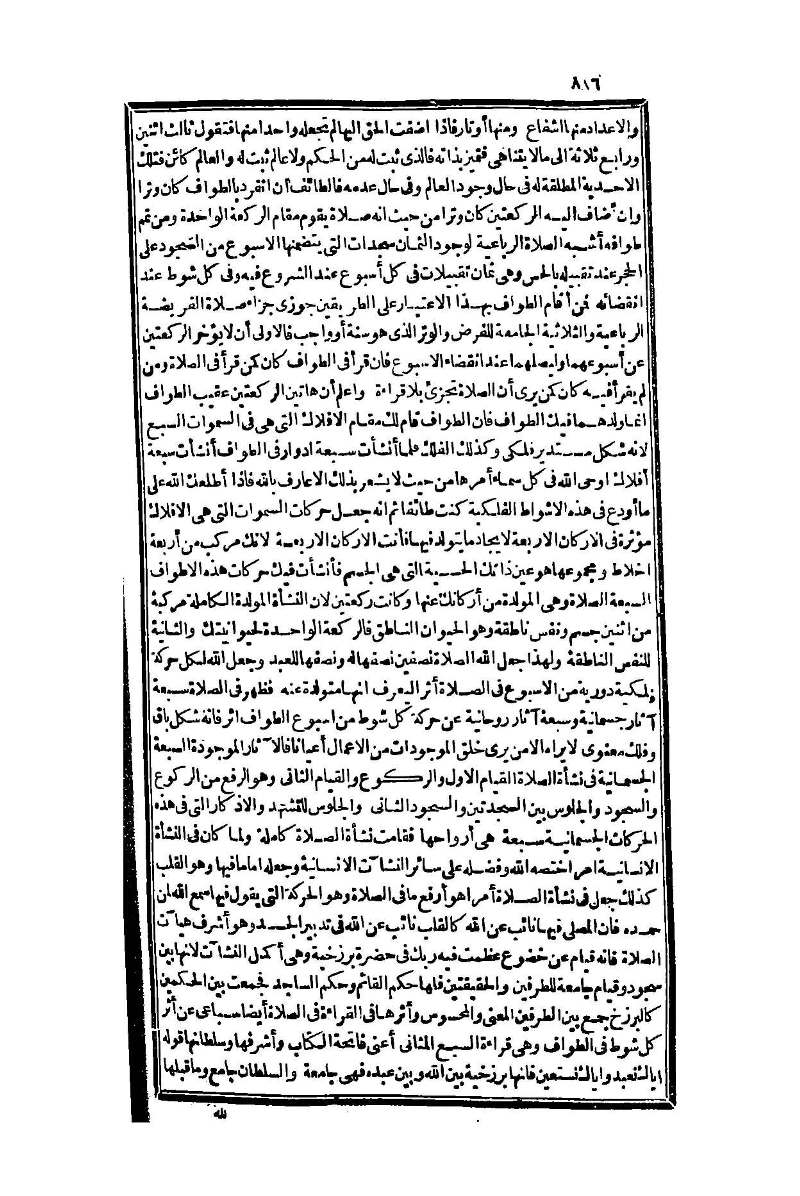 ٨١٦
والاعداد منها اشفاع ومنها أوتار فاذا اضفت الحق اليها لم تجعله واحدا منها فتقول ثالث اثنين
ورابع ثلاثة الى مالا يتناهى فتميز بذاته فالذى ثبت له من الحكم ولا عالم ثبت له والعالم كائن فتلك
الاحدية المطلقة له فى حال وجود العالم وفى حال عدمه فالطائف ان انفرد بالطواف كان وترا
وان أضاف اليه الركعتين كان وترا من حيث انه صلاة يقوم مقام الركعة الواحدة ومن تم
طوافه أشبه الصلاة الرباعية لوجود الثمان سجدات التى يتضمنها الاسبوع من السجود على
الحجر عند تقبيله بالحس وهى ثمان تقبيلات فى كل أسبوع عند الشروع فيه وفى كل شوط عند
انقضائه فمن أقام الطواف بهذا الاعتبار على الطريقين جوزى جزاء صلاة الفريضة
الرباعية والثلاثية الجامعة للفرض والوتر الذى هو سنة أو واجب فالاولى أن لا يؤخر الركعتين
عن أسبوعهما وليصلهما عند انقضاء الاسبوع فان قرأ فى الطواف كان كمن قرأ فى الصلاة ومن
لم يقرأ فيه كان كمن يرى أن الصلاة تجزئ بلا قراءة واعلم أن هاتين الركعتين عقيب الطواف
انما ولدهما فيك الطواف فان الطواف قام لك مقام الافلاك التى هى فى السموات السبع
لانه شكل مستدير فلكى وكذلك الفلك فلما أنشأت سبعة ادوار فى الطواف أنشأت سبعة
أفلاك اوحى الله فى كل سماء أمرها من حيث لا يشعر بذلك الا عارف بالله فاذا أطلعك الله على
ما أودع فى هذه الاشواط الفلكية كنت طائفا ثم انه جعل حركات السموات التى هى الافلاك
مؤثرة فى الاركان الاربعة لايجاد ما يتولد فيها فأنت الاركان الاربعة لانك مركب من أربعة
اخلاط ومجموعها هو عين ذاتك الحسية التى هى الجسم فأنشأت فيك حركات هذه الاطواف
السبعة الصلاة وهى المولدة من أركانك عنها وكانت ركعتين لان النشأة المولدة الكاملة مركبة
من اثنين جسم ونفس ناطقة وهو الحيوان الناطق فالركعة الواحدة لحيوانيتك والثانية
للنفس الناطقة ولهذا جعل الله الصلاة نصفين نصفها له ونصفها للعبد وجعل الله لكل حركة
فلكية دورية من الاسبوع فى الصلاة أثر ليعرف انها متولدة عنه فظهر فى الصلاة سبعة
آثار جسمانية وسبعة آثار روحانية عن حركة كل شوط من اسبوع الطواف اثر فانه شكل باق
وفلك معنوى لا يراه الا من يرى خلق الموجودات من الاعمال أعيانا فالآثار الموجودة السبعة
الجسمانية فى نشأة الصلاة القيام الاول والركوع والقيام الثانى وهو الرفع من الركوع
والسجود والجلوس بين السجدتين والسجود الثانى والجلوس للتشهد والاذكار التى فى هذه
الحركات الجسمانية سبعة هى أرواحها فقامت نشأة الصلاة كاملة ولما كان فى النشأة
الانسانية امر اختصه الله وفضله على سائر النشات الانسانية وجعله اماما فيها وهو القلب
كذلك جعل فى نشأة الصلاة أمرا هو أرفع ما فى الصلاة وهو الحركة التى يقول فيها سمع الله لمن
حمده فان المصلى فيها نائب عن الله كالقلب نائب عن الله فى تدبير الجسد وهو أشرف هيآت
الصلاة فانه قيام عن خضوع عظمت فيه ربك فى حضرة برزخية وهى أكمل النشآت لانها بين
سجود وقيام جامعة للطرفين والحقيقتين فلها حكم القائم وحكم الساجد فجمعت بين الحكمين
كالبرزخ جمع بين الطرفين المعنى والمحسوس وأثرها فى القراءة فى الصلاة أيضا سباعى عن أثر
كل شوط فى الطواف وهى قراءة السبع المثانى أعنى فاتحة الكتاب وأشرفها وسلطانها قوله
اياك نعبد واياك نستعين فانها برزخية بين الله وبين عبده فهى جامعة والسلطان جامع وما قبلها
لله